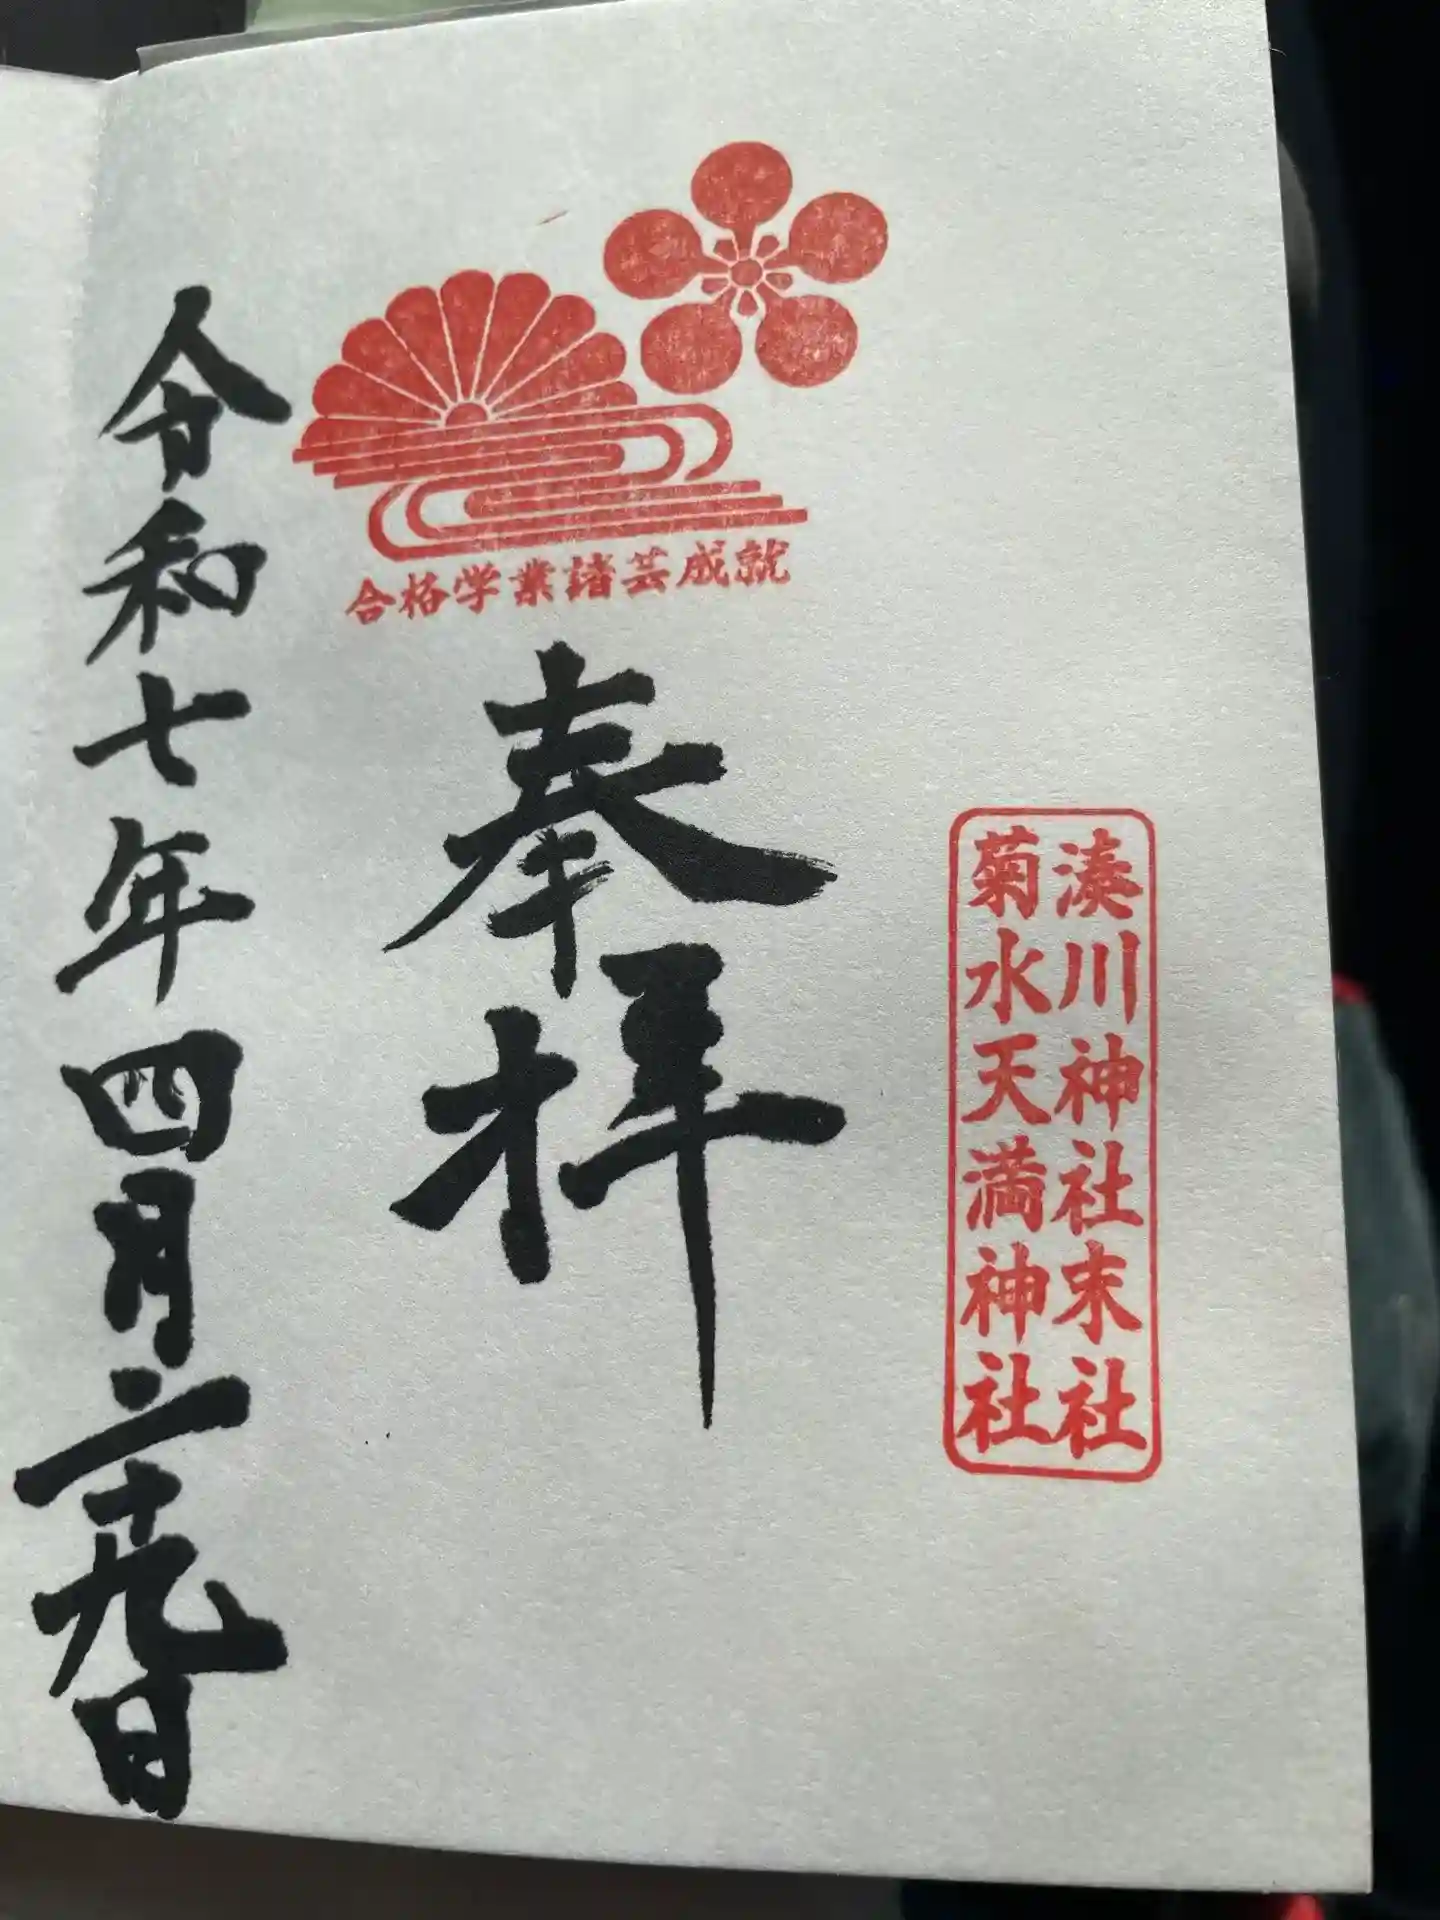 湊川神社末社
菊水天満神社
合格学業諸芸成就
奉拝
令和七年四月二十九日